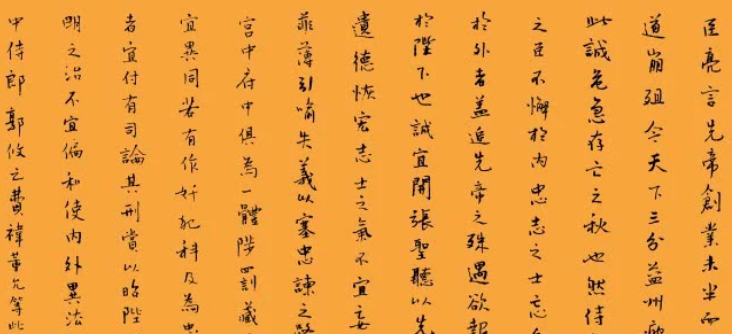 臣亮言先帝創業未半而
道崩殂今天下三分益州疲
此誠危急存亡之秋也然侍
之臣不懈於內忠志之士忘
於外者蓋追先帝之殊遇欲報
於陛下也誠宜開張聖聽以光
遺德恢宏志士之氣不宜妄
菲薄引喻失義以塞忠諫之路
宮中府中俱為一體陟罰臧
宜異同若有作奸犯科及為忠
者宜付有司論其刑賞以昭陛
明之治不宜偏私使內外異法
中侍郎郭攸之費禕董允等此